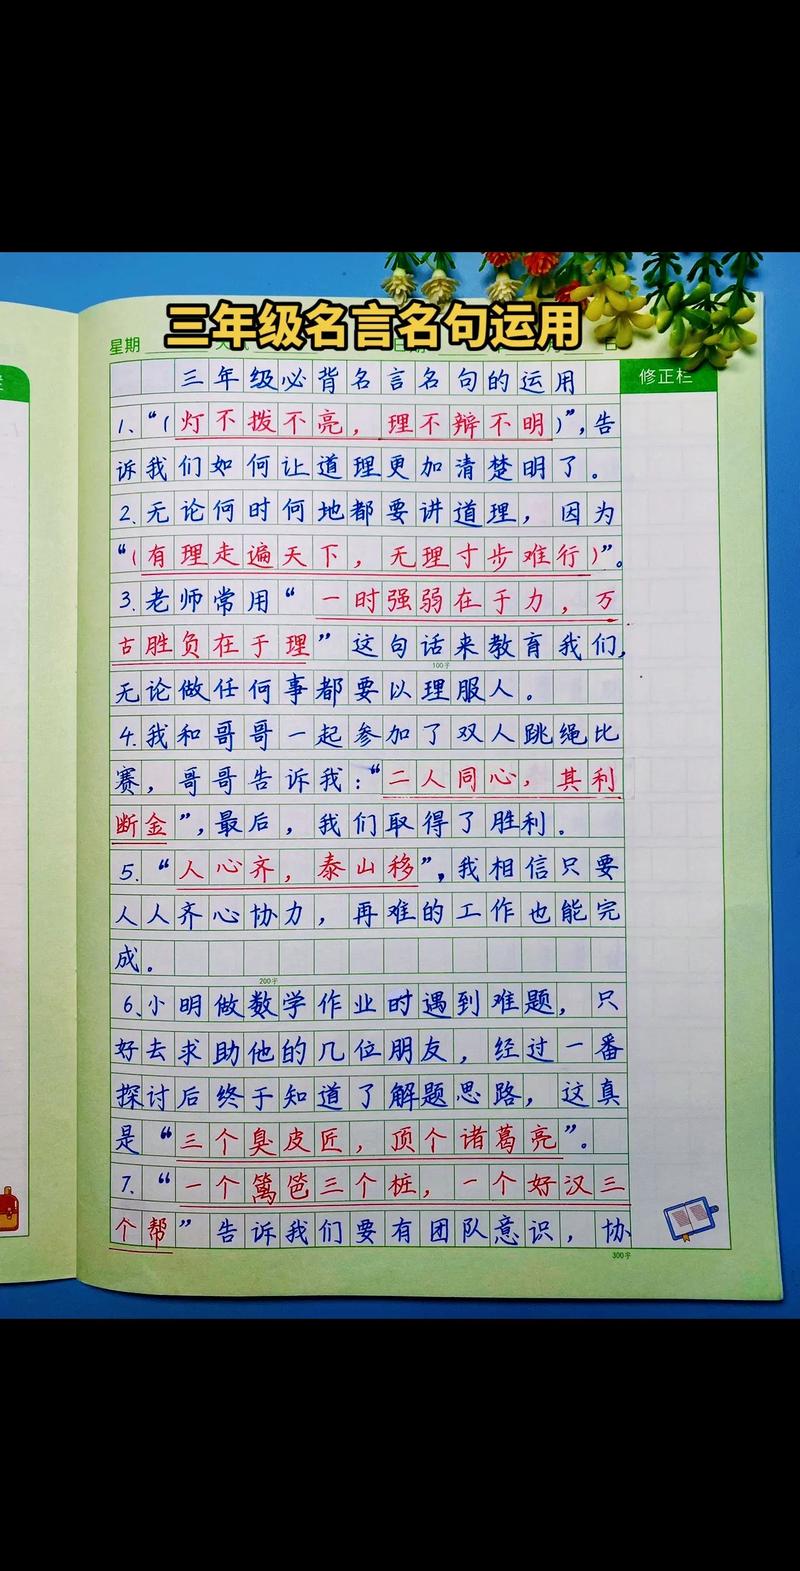 三年级名言名句运用
星期
日
三年级必背名言名句的运用
修正栏
1、“（灯不拨不亮，理不辩不明）”，告
诉我们如何让道理更加清楚明了。
2、无论何时何地都要讲道理，因为
“（有理走遍天下，无理寸步难行）”。
3、老师常用“一时强弱在于力，万
古胜负在于理”这句话来教育我们，
100字
无论做任何事都要以理服人。
4、我和哥哥一起参加了双人跳绳比
赛，哥哥告诉我：“二人同心，其利
断金”，最后，我们取得了胜利。
5、“人心齐，泰山移”，我相信只要
人人齐心协力，再难的工作也能完
成。
200字
6、小明做数学作业时遇到难题，只
好去求助他的几位朋友，经过一番
探讨后终于知道了解题思路，这真
是“三个臭皮匠，顶个诸葛亮”。
7、“一个篱笆三个桩，一个好汉三
个帮”告诉我们要有团队意识，协
300字